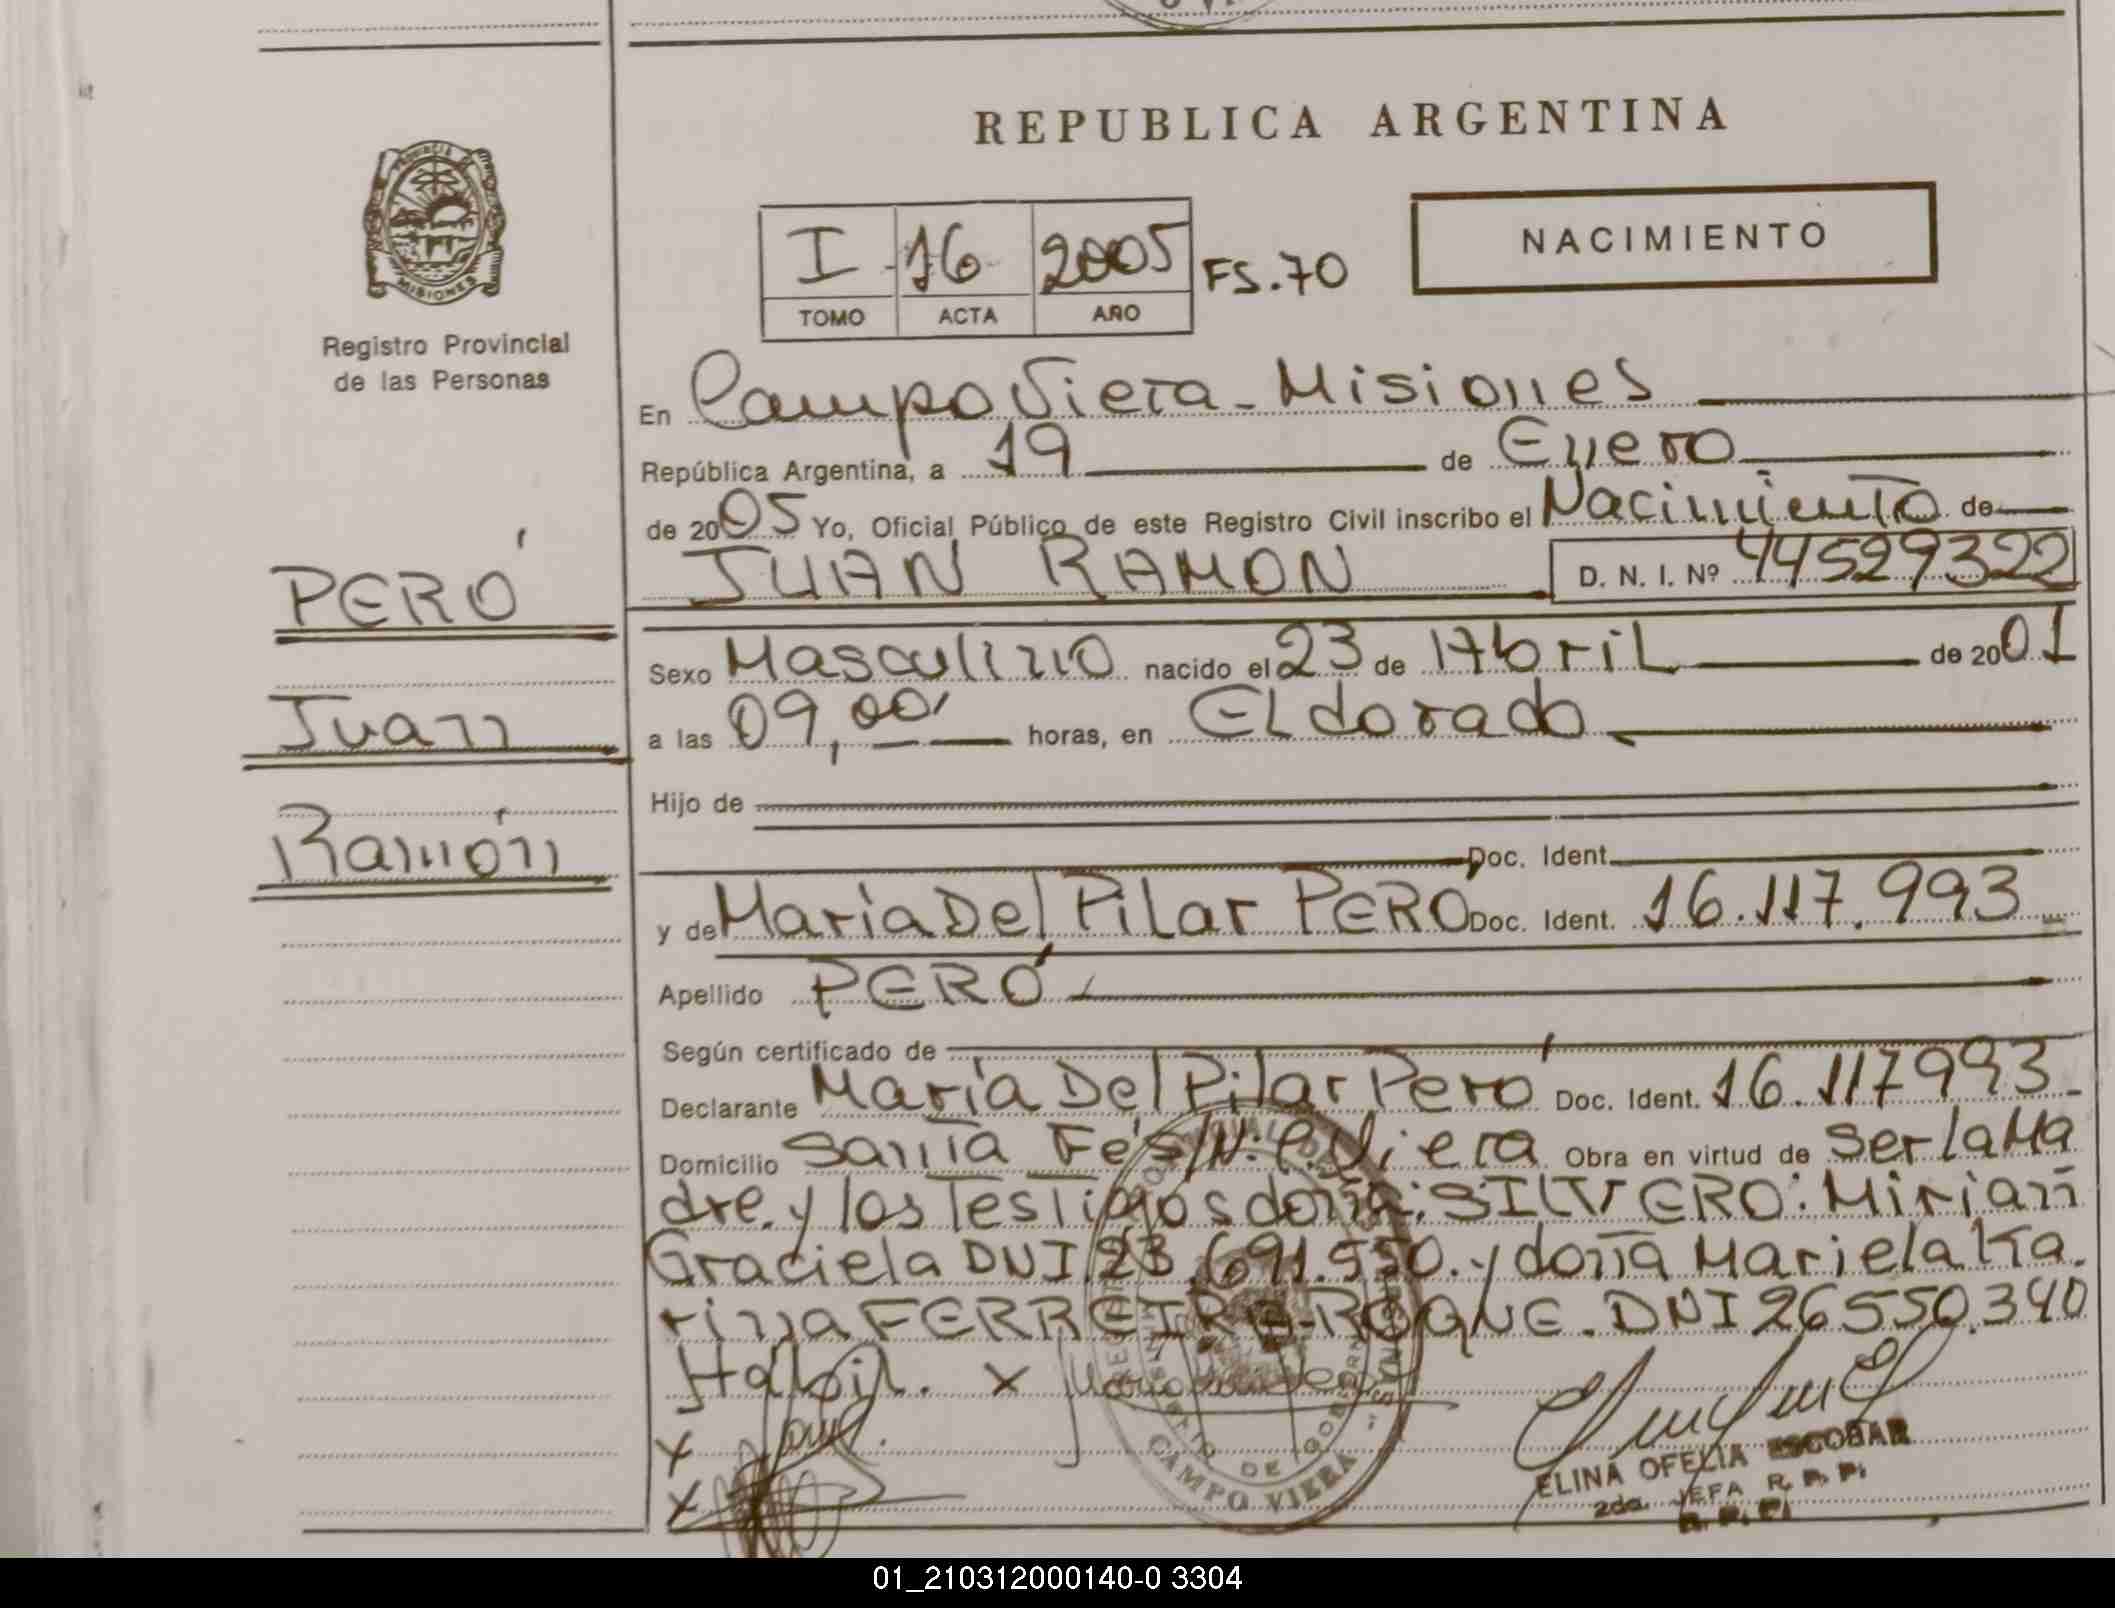 PROVINCIA DE
MISIONES
Registro Provincial
de las Personas
PERÓ
Juan
Ramón
REPUBLICA ARGENTINA
I 16 2005 FS.70
TOMO ACTA AÑO
NACIMIENTO
En Campo Viera - Misiones
República Argentina, a 19 de Enero
de 2005 Yo, Oficial Público de este Registro Civil inscribo el Nacimiento de
JUAN RAMON D. N. I. Nº 44529322
Sexo Masculino nacido el 23 de Abril de 2001
a las 09,00 horas, en ELdorado
Hijo de
Doc. Ident.
y de María Del Pilar PERÓ Doc. Ident. 16.117.993
Apellido PERÓ
Según certificado de
Declarante María Del Pilar Peró Doc. Ident. 16.117993
Domicilio Santa Fé S/N: C. Viera Obra en virtud de Ser la Ma
dre. y los Testigos doña: SILVERO: Mirian
Graciela DNI 23.691.550. y doña Mariela Ka.
rina FERREIRA-ROQUE. DNI 26550.340
Habil. x
x
x
CAMPO VIERA
ELINA OFELIA ESCOBAR
2da. JEFA R. P. P.
01_210312000140-0 3304